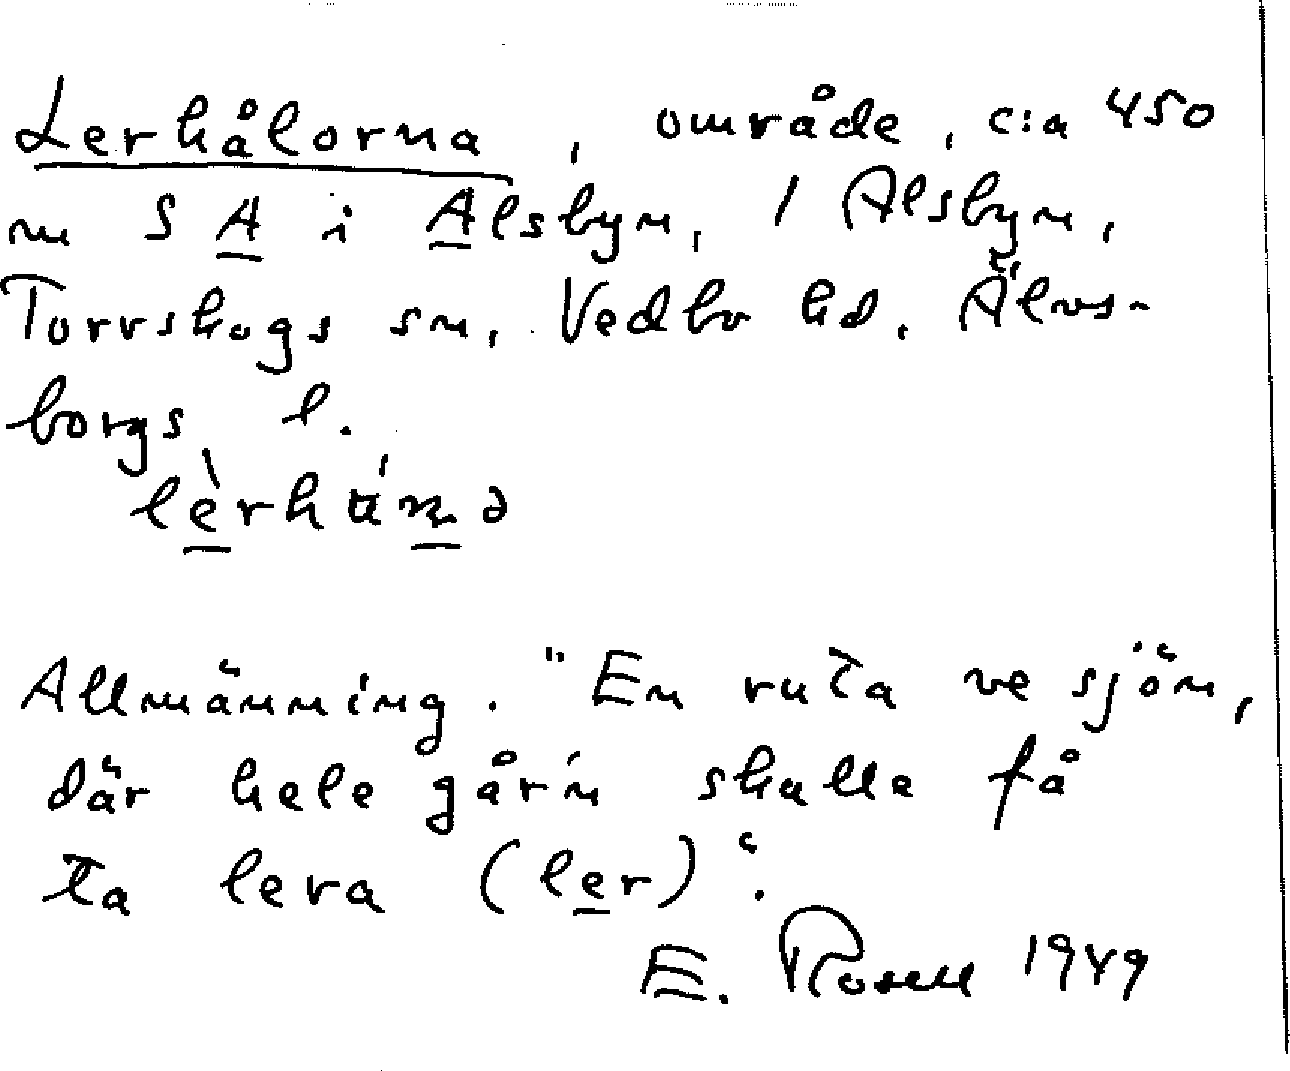 Lerhålorna, område, c:a 450
m S A i Alsbyn, 1 Alsbyn,
Torrskogs sn, Vedbo hd. Älvs-
borgs l.
Allmänning. "En ruta ve sjön,
där hele gårn skulle få
ta lera (ler)".
E. Rosell 1949